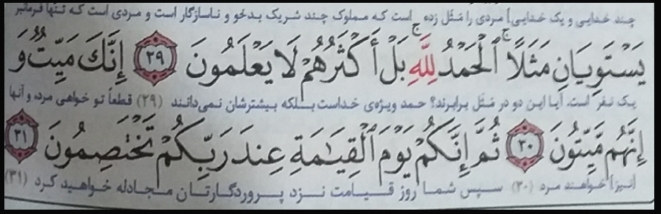 چند خدایی و یک خدایی] مردی را مَثَل زده است که مملوک چند شریک بدخو و ناسازگار است و مردی است که تنها فرمانبر
يَسْتَوِيَانِ مَثَلًا ۚ ٱلْحَمْدُ لِلَّهِ ۚ بَلْ أَكْثَرُهُمْ لَا يَعْلَمُونَ ٢٩ إِنَّكَ مَيِّتٌ وَ
یک نفر است. آیا این دو در مَثَل برابرند؟ حمد ویژه‌ی خداست بلکه بیشترشان نمی‌دانند (۲۹) قطعاً تو خواهی مرد و آنها
إِنَّهُم مَّيِّتُونَ ٣٠ ثُمَّ إِنَّكُمْ يَوْمَ ٱلْقِيَٰمَةِ عِندَ رَبِّكُمْ تَخْتَصِمُونَ ٣١
[نیز] خواهند مرد (۳۰) سپس شما روز قیامت نزد پروردگارتان مجادله خواهید کرد (۳۱)